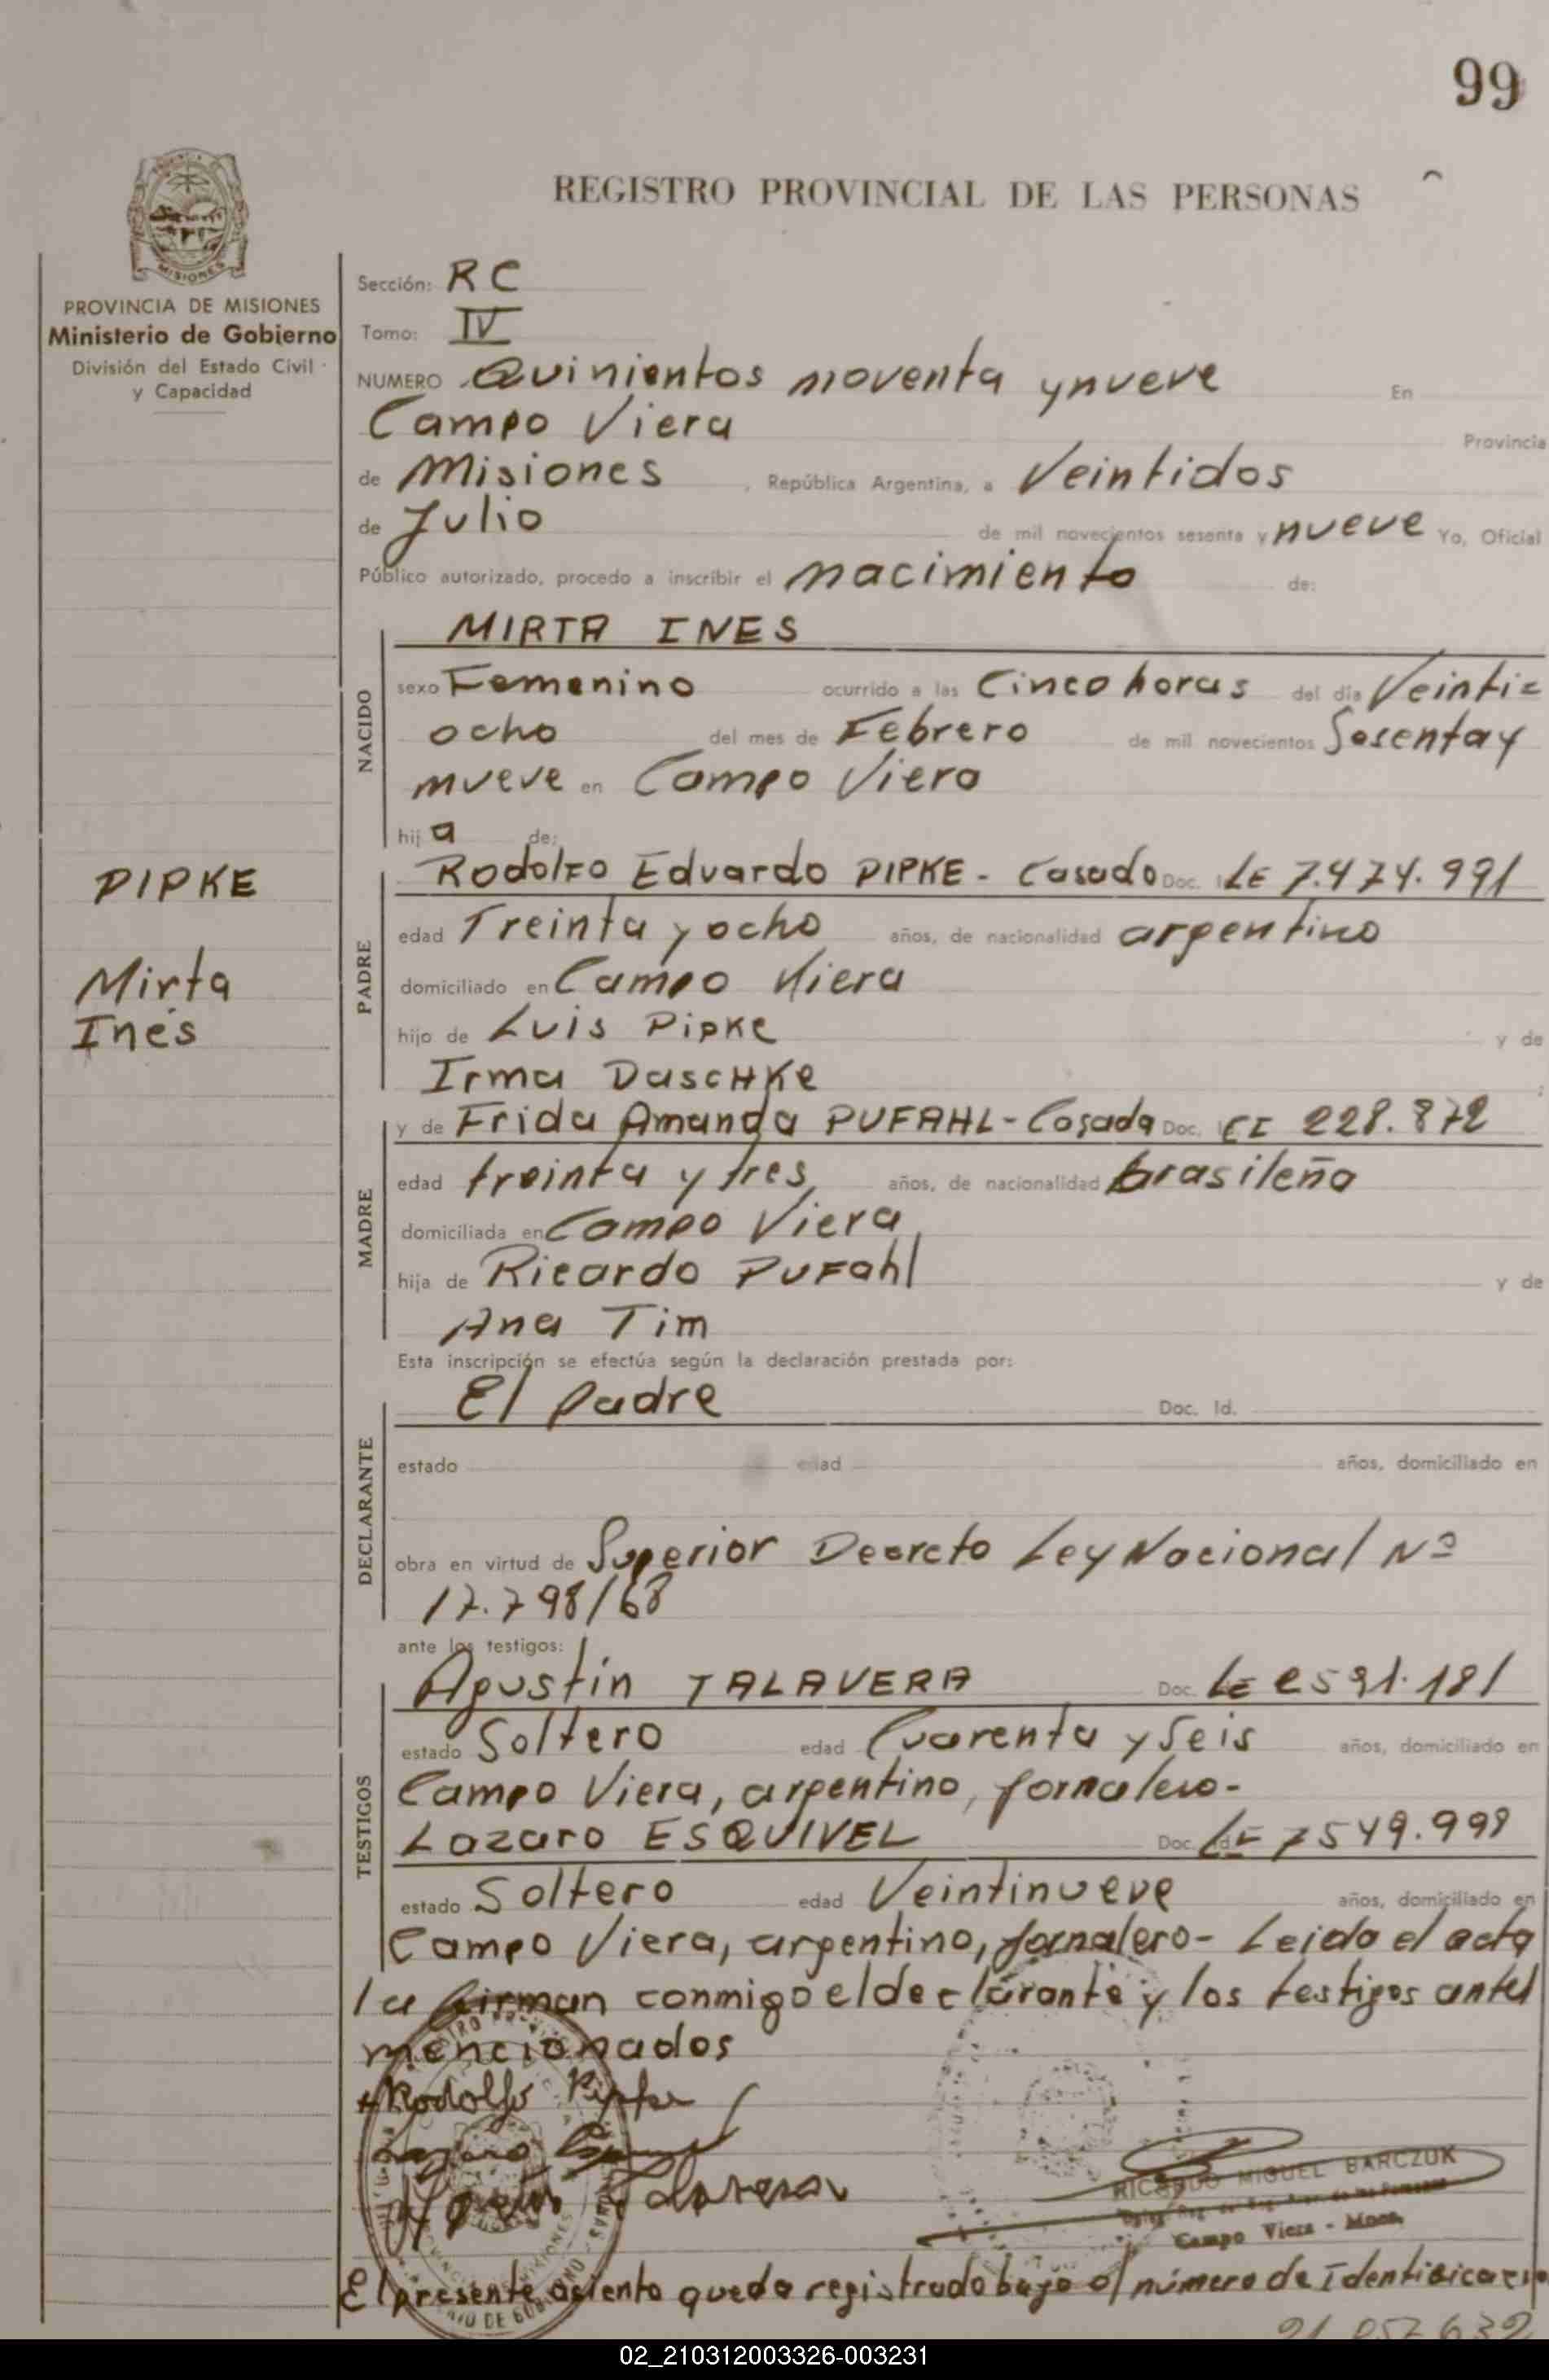 99
REGISTRO PROVINCIAL DE LAS PERSONAS
MISIONES
PROVINCIA DE MISIONES
Ministerio de Gobierno
División del Estado Civil
y Capacidad
Sección: RC
Tomo: IV
NUMERO Quinientos noventa y nueve En
Campo Viera Provincia
de Misiones, República Argentina, a Veintidos
de Julio de mil novecientos sesenta y nueve Yo, Oficial
Público autorizado, procedo a inscribir el nacimiento de:
NACIDO
MIRTA INES
sexo Femenino ocurrido a las Cinco horas del día Veinti=
ocho del mes de Febrero de mil novecientos Sesenta y
nueve en Campo Viera
hija de:
PIPKE
Mirta
Inés
PADRE
Rodolfo Eduardo PIPKE - Casado Doc. LE 7.474.991
edad Treinta y ocho años, de nacionalidad argentino
domiciliado en Campo Viera
hijo de Luis Pipke y de
Irma Daschke
MADRE
y de Frida Amanda PUFAHL - Casada Doc. CI 228.872
edad treinta y tres años, de nacionalidad brasileña
domiciliada en Campo Viera
hija de Ricardo Pufahl y de
Ana Tim
Esta inscripción se efectúa según la declaración prestada por:
DECLARANTE
El padre Doc. Id.
estado edad años, domiciliado en
obra en virtud de Superior Decreto Ley Nacional Nº
17.798/68
ante los testigos:
TESTIGOS
Agustín TALAVERA Doc. LE 2591.181
estado Soltero edad Cuarenta y Seis años, domiciliado en
Campo Viera, argentino, jornalero-
Lazaro ESQUIVEL Doc. Id. LE 7549.999
estado Soltero edad Veintinueve años, domiciliado en
Campo Viera, argentino, jornalero- Leido el acta
la firman conmigo el declarante y los testigos antes
mencionados
Rodolfo Pipke
Talavera
RICARDO MIGUEL BARCZUK
Campo Viera - Mnes.
El presente asiento queda registrado bajo el número de Identificación
21.057.632
02_210312003326-003231